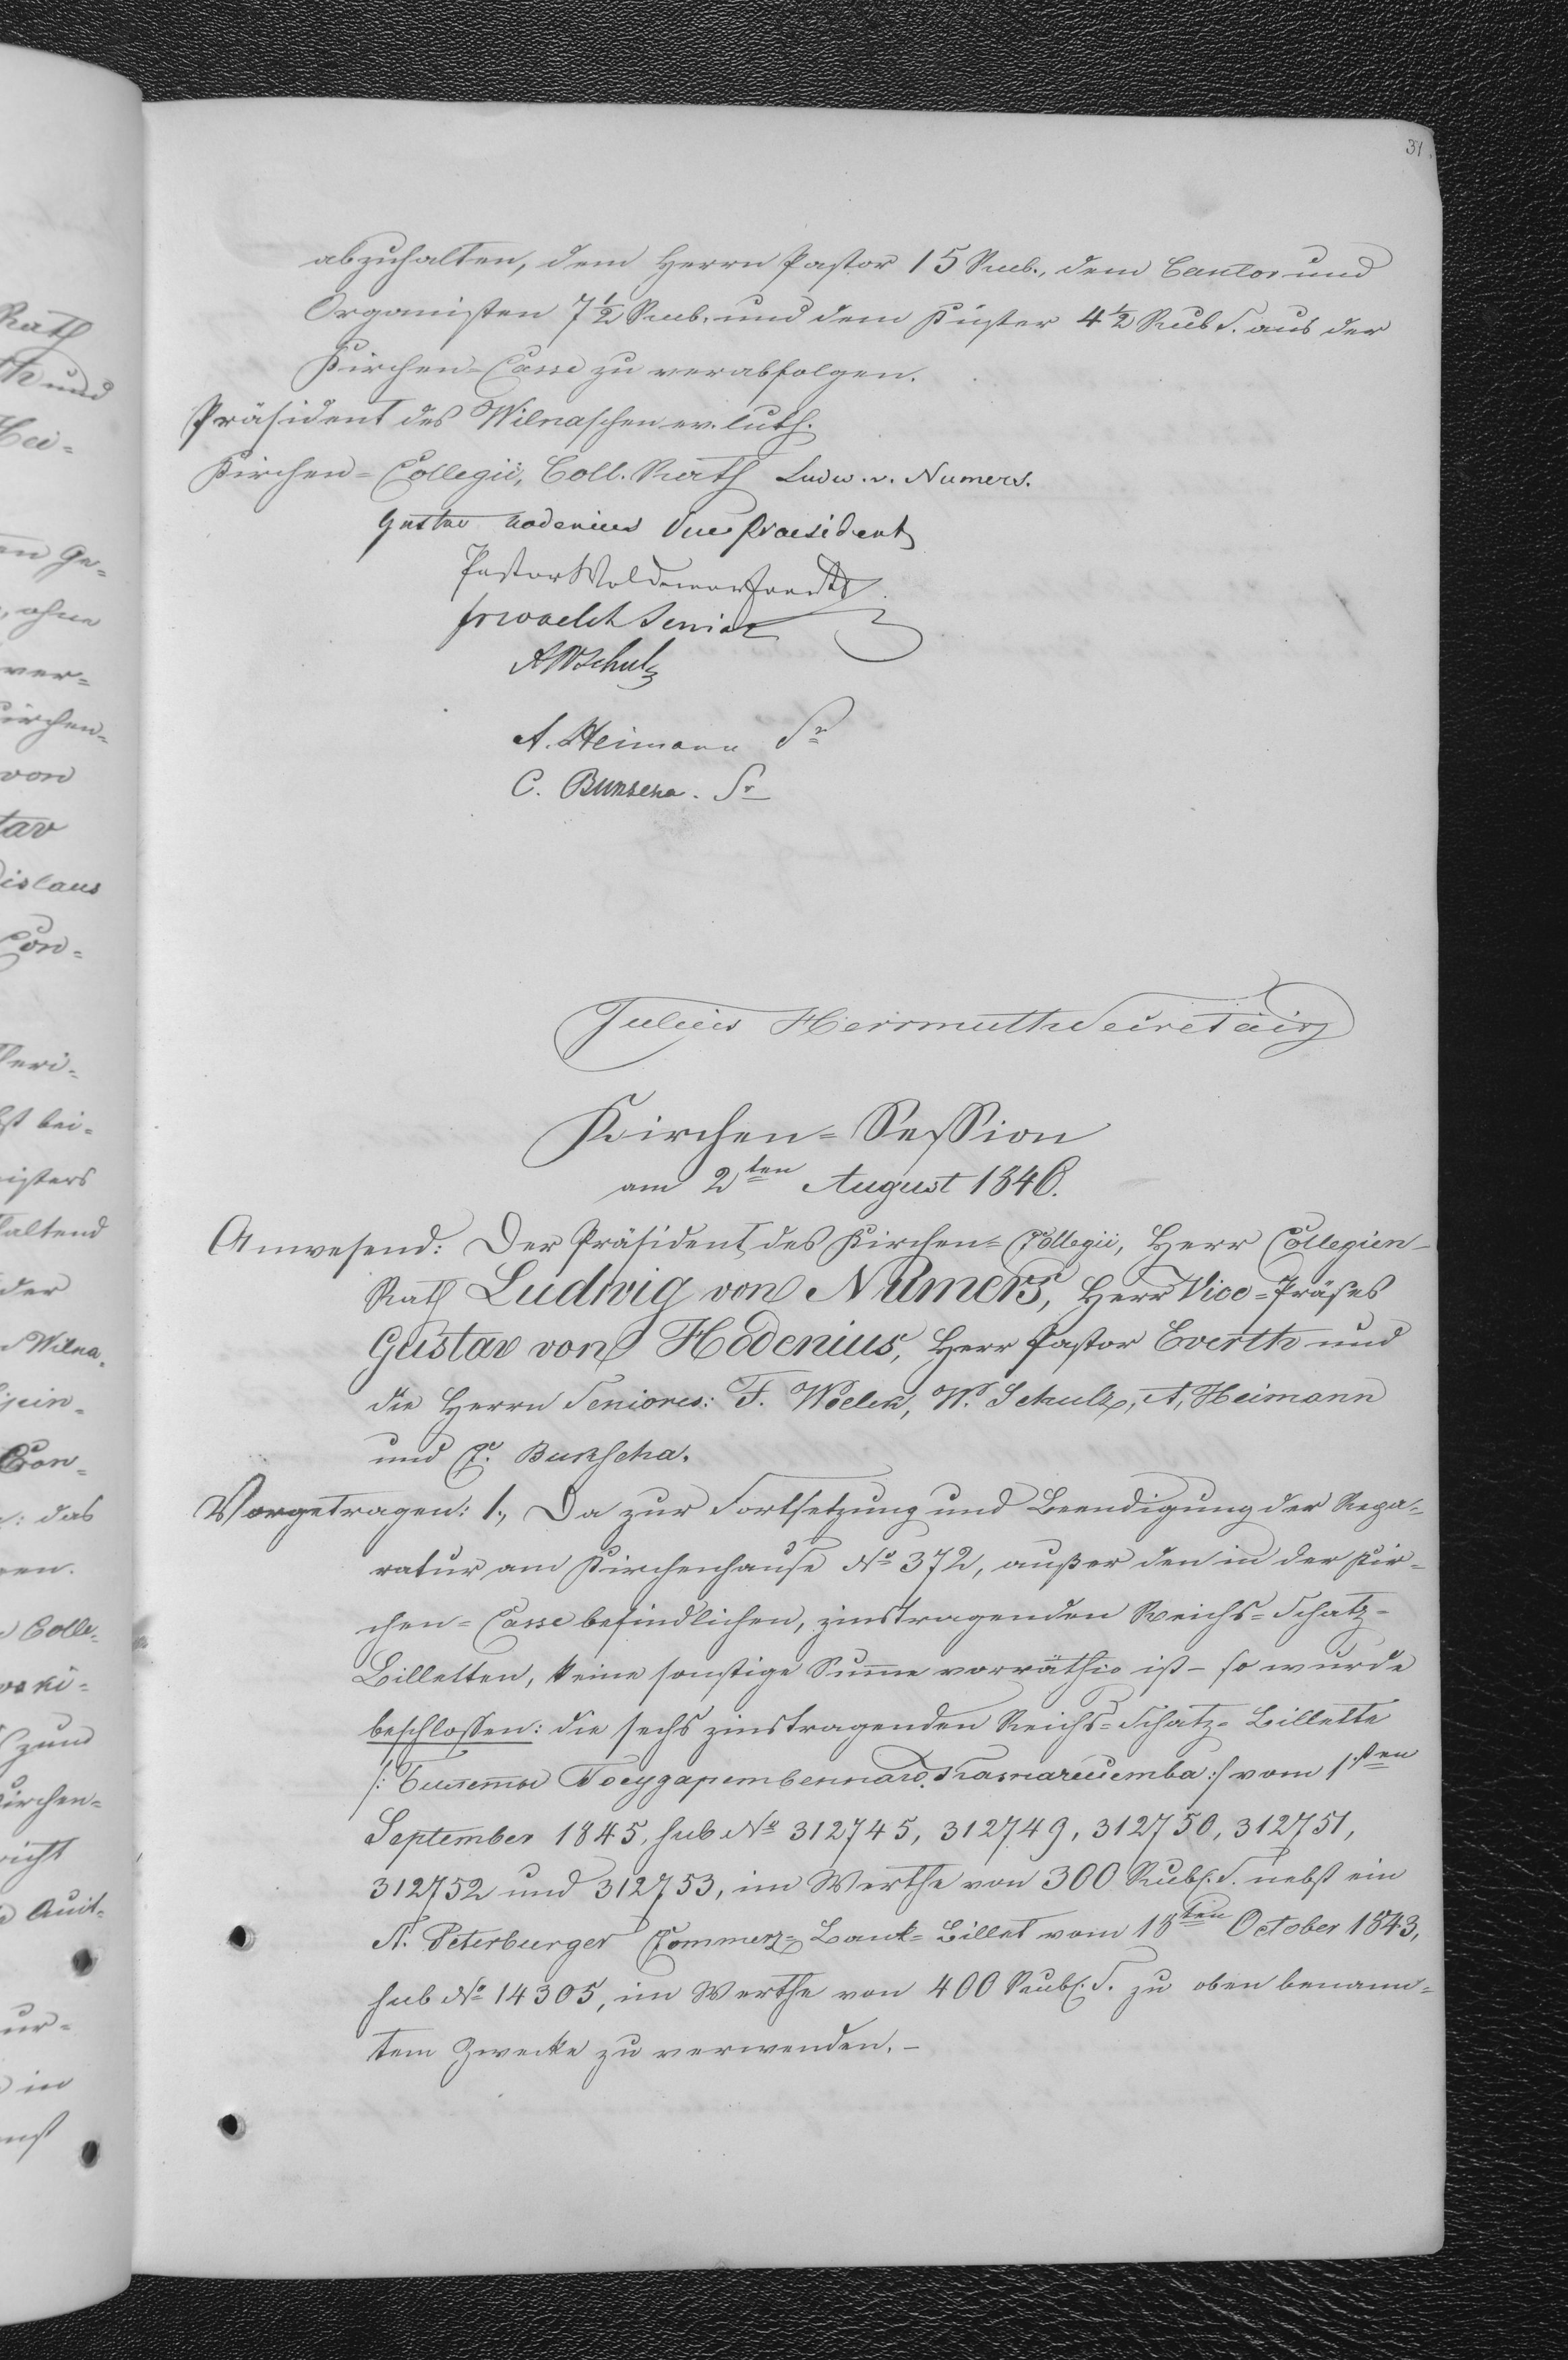 31.
abzuhalten, dem Herrn Pastor 15 Rub., dem Cantor und
Organisten 7½ Rub. und dem Küster 4½ Rub S. aus der
Kirchen-Casse zu verabfolgen.
Präsident des Wilnaschen ev. luth.
Kirchen-Collegii, Coll. Rath Ludw. v. Numers.
Gustav Hodenius Vice Praesident
Pastor Woldemar Everth
Fr Woelck Senior
A W Schulz
A. Heimann Sr
C. Bukscha. Sr
Julius Herrmuth Secretair
Kirchen=Session
am 2ten August 1846.
Anwesend: Der Präsident des Kirchen=Collegii, Herr Collegien-
Rath Ludwig von Numers, Herr Vice=Präses
Gustav von Hodenius, Herr Pastor Everth und
die Herrn Seniores: F. Woelck, W. Schulz, A, Heimann
und C. Bukscha.
Vorgetragen: 1., Da zur Fortsetzung und Beendigung der Repa=
ratur am Kirchenhause No 372, außer den in der Kir=
chen=Casse befindlichen, zinstragenden Reichs=Schatz=
Billetten, keine sonstige Sum̄e vorräthig ist – so wurde
beschlossen: die sechs zinstragenden Reichs=Schatz=Billette
/: Билеты Государственнаго Казначейства :/ vom 1sten
September 1845, sub No 312745, 312749, 312750, 312751,
312752 und 312753, im Werthe von 300 Rubl. S. nebst ein
St. Peterburger Commerz=Bank=Billet vom 18ten October 1843,
sub No 14305, im Werthe von 400 Rubl. S. zu oben benann=
tem Zwecke zu verwenden. –